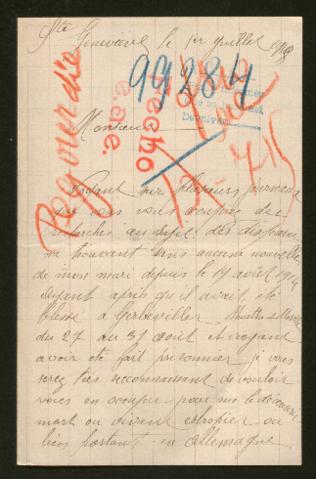 Ste Geneviève le 1er juillet
99284
Monsieur
Voyant sur plusieurs journaux
que vous vous occupiez des
recherches au sujet des disparus
me trouvant sans aucune nouvelle
de mon mari depuis le 19 août 1914
ayant appris qu'il avait été
blessé à Gerbeviller Meurthe et Moselle
du 27 au 31 août et croyant
avoir été fait prisonnier je vous
serez très reconnaissant de vouloir
vous en occuper pour me le découvrir
mort ou vivant estropier ou
bien portant en Allemagne